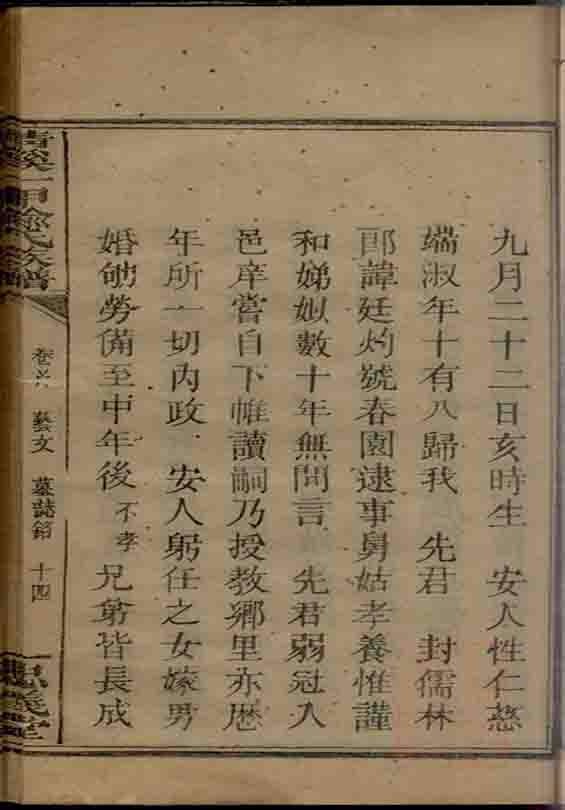 九月二十二日亥時生　安人性仁慈
端淑年十有八歸我　先君　封儒林
郎諱廷灼號春園逮事舅姑孝養惟謹
和娣姒數十年無間言　先君弱冠入
邑庠嘗自下帷讀嗣乃授教鄉里亦歷
年所一切內政　安人躬任之女嫁男
婚劬勞備至中年後不孝兄弟皆長成
甲徐氏族譜
藝文　墓誌銘　十四
義堂